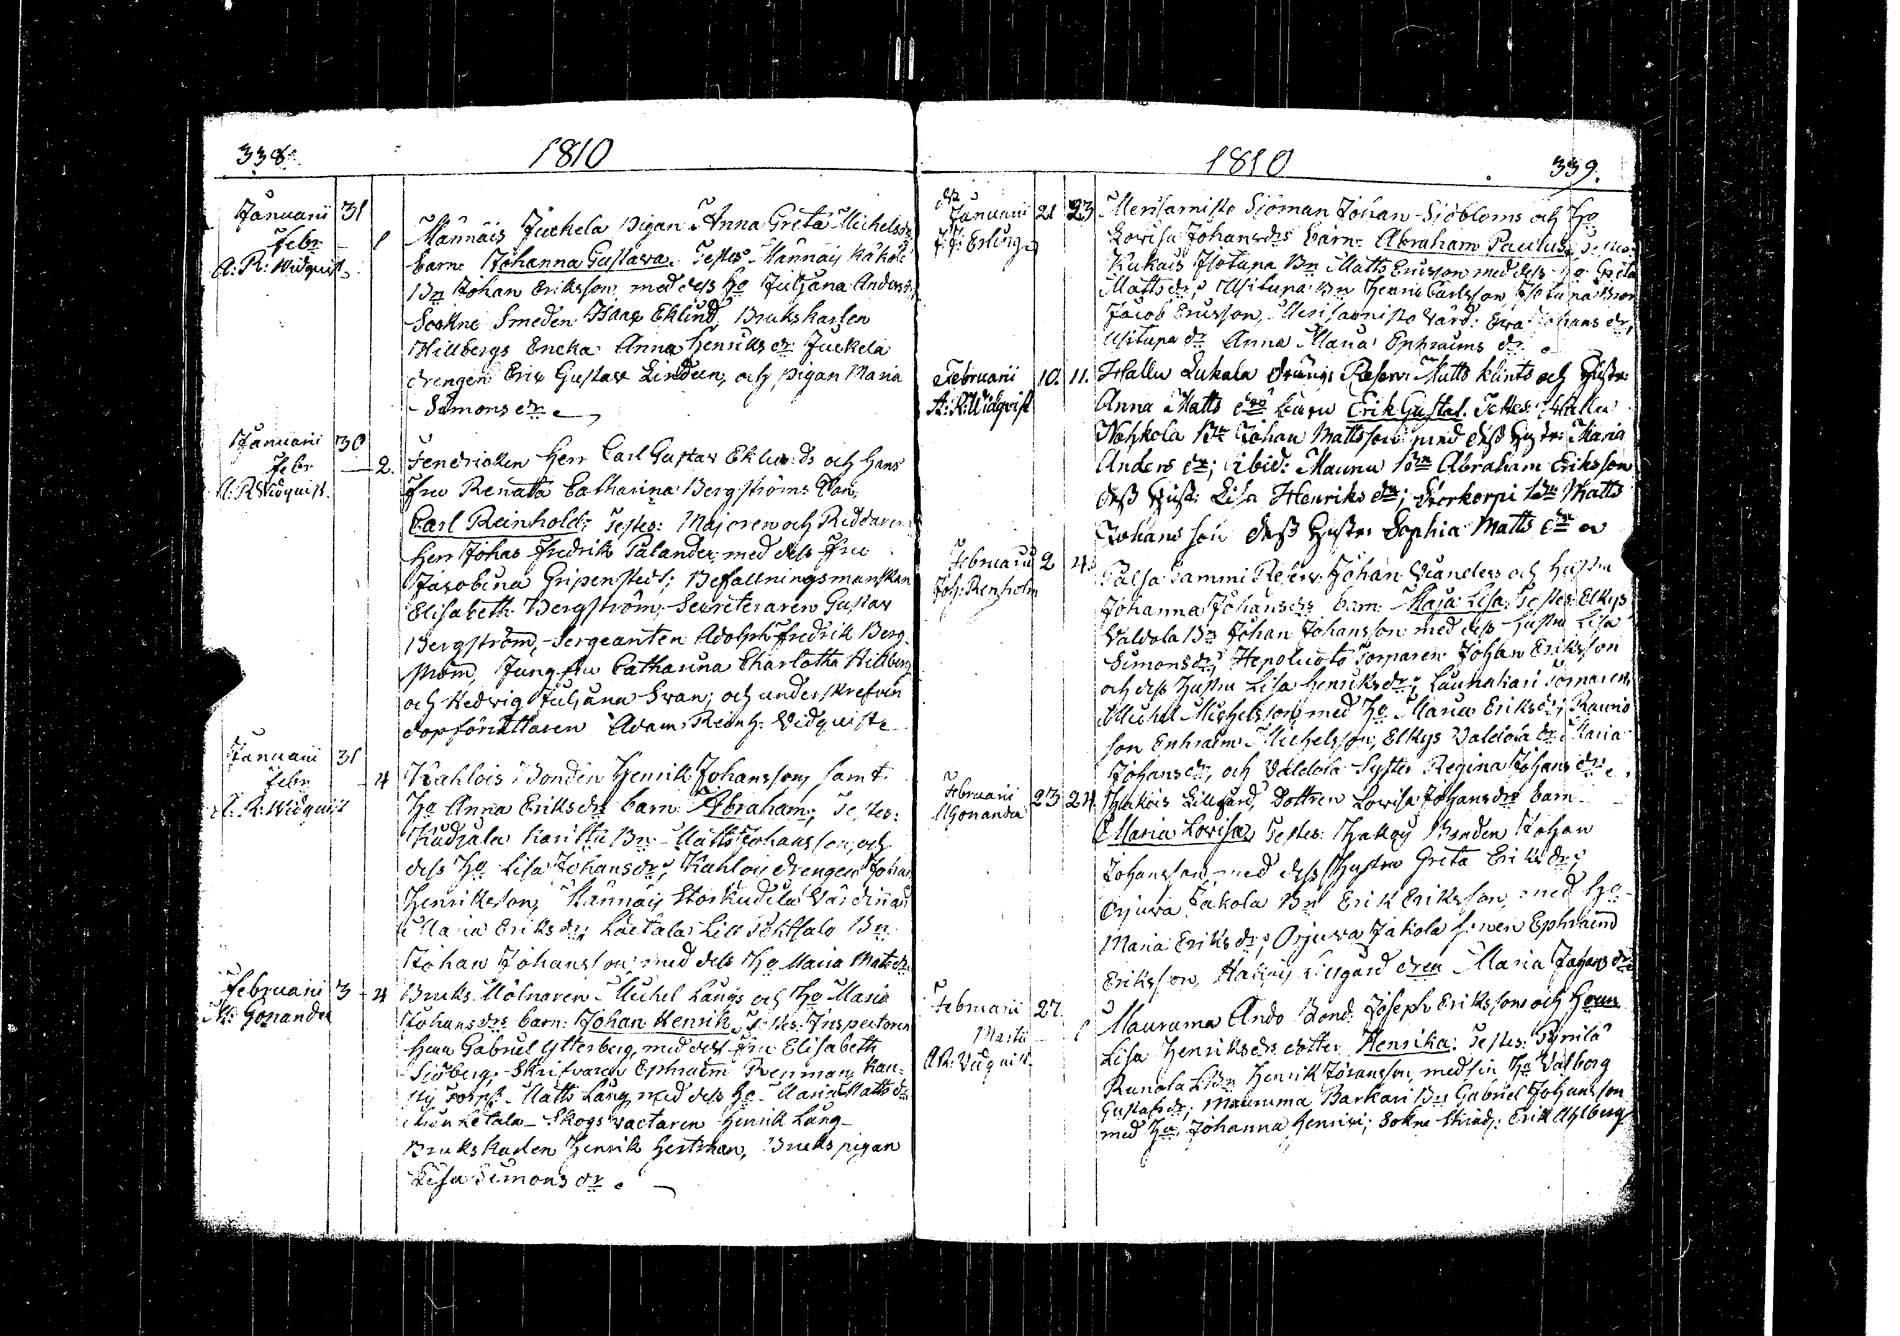 338.
1810
Januarii 31
Febr. 1
A: R: Widquist
Mannäis Juckela Pigan Anna Greta Michelsdr
barn: Johanna Gustava. Testes Mannäis Kåkola
Bn Johan Eriksson, med dess Ho Juliana Andersdr,
Sockne Smeden Isaac Eklind, Brukskarlen
Hillbergs Encka Anna Henriksdr: Juckela
drengen Eric Gustav Lindeen, och pigan Maria
Simonsdr.
Januarii 30
Febr 2.
A: R Widquist.
Fendricken Herr Carl Gustav Eklunds och Hans
Fru Renata Catharina Bergströms
Carl Reinhold; Testes: Majoren och Riddaren
Herr Johas Fredrik Palander med dess Fru
Jacobina Gripenstedt; Befallningsmanskan
Elisabeth Bergström; Secreteraren Gustav
Bergström, Sergeanten Adolph Fredrik Berg-
ström, Jungfru Catharina Charlotta Hillberg
och Hedvig Juliana Svan; och underskrefven
dopförrättaren Adam Reinh: Vidquist.
Januarii 31
Febr 4
A: R: Widquist
Kahlois Bonden Henrik Johansson, samt
Ho Anna Eriksdrs barn Abraham; Testes:
Kudjala Karittu Bn Matts Johansson, och
dess Ho Lisa Johansdr; Kahlois drengen Johan
Henriksson, Mannäis Storkudila Värdinnan
Maria Eriksdr; Laitala Bn
Johan Johansson med dess Ho Maria Matsdr.
Februarii 3 4
M: Gonander
Bruks Mölnaren Michel Längs och Ho Maria
Johansdrs barn: Johan Henrik. Testes: Inspectoren
Herr Gabriel Ytterberg, med dess Fru Elisabeth
Sjöberg. Skrifvaren Ephraim Renman, Kan-
Torp: Matts Lång med dess Ho Maria Mattsdr
Skogsvactaren Henrik Lång
Brukskarlen Henrik Hertman, Brukspigan
Lisa Simonsdr.
1810
339.
Januarii 21 23
Merisamisto Sjöman Johan Sjöbloms och Ho
Lovisa Johansdrs barn: Abraham Paulus, Testes
Kukais Isotupa Bn Matts Ericsson med dess Ho Greta
Mattsdr; Usitupa Bn Henric Carlsson, Isotupa Bron
Jacob Ericsson, Merisamisto Värd: Eva Johansdr,
Usitupa dr Anna Maria Ephraimsdr.
Februarii 10. 11.
A: R: Widqvist
Hallu Lukala drängs Reserv: Matts Klints och Hustr
Anna Matts drs barn Erik Gustaf. Testes: Hallu
Nohkola Bn Johan Mattsson med dess Hustr: Maria
Anders dr; ibid: Maunu Bn Abraham Eriksson
dess Hust: Lisa Henriks dr; Storkorpi Bn Matts
Johansson dess Hustr: Sophia Matts dr
Februarii 2 4.
Joh: Renholm
Johan Vianders och Hustru
Johanna Johansdrs barn: Maja Lisa, Testes: Elkys
Valdola Bn Johan Johansson med dess Hustru Lisa
Simonsdr; Torparen Johan Eriksson
och dess Hustru Lisa Henriksdr; Launakari Torparen
Michel Michelsson med Ho Maria Eriksdr;
son Ephraim Michelsson, Elkys Valdola dr Maria
Johansdr, och Valdola Syster Regina Johansdr.
Februarii 23 24
M Gonander
Hakois Lillgård, Dottren Lovisa Johansdrs barn
Maria Lovisa, Testes: Hakois Bonden Johan
Johansson med dess Hustru Greta Eriksdr;
Orjuva Jakola Bn Erik Eriksson, med Ho
Maria Eriksdr; Orjuva Jakola sonen Ephraim
Eriksson, Hakois Lillgård dren Maria Johansdr
Februarii 27.
Martii 1
A R: Vidquist
Mauruma Ando Bond: Joseph Erikssons och Hurn
Lisa Henriksdrs dotter Henrika: Testes:
Runola Henrik Johansson, med sin Ho Valborg
Gustafsdr; Mauruma Barkari Bn Gabriel Johansson
med Ho Johanna Henrici; Sokne Skräd: Erik Ahlberg